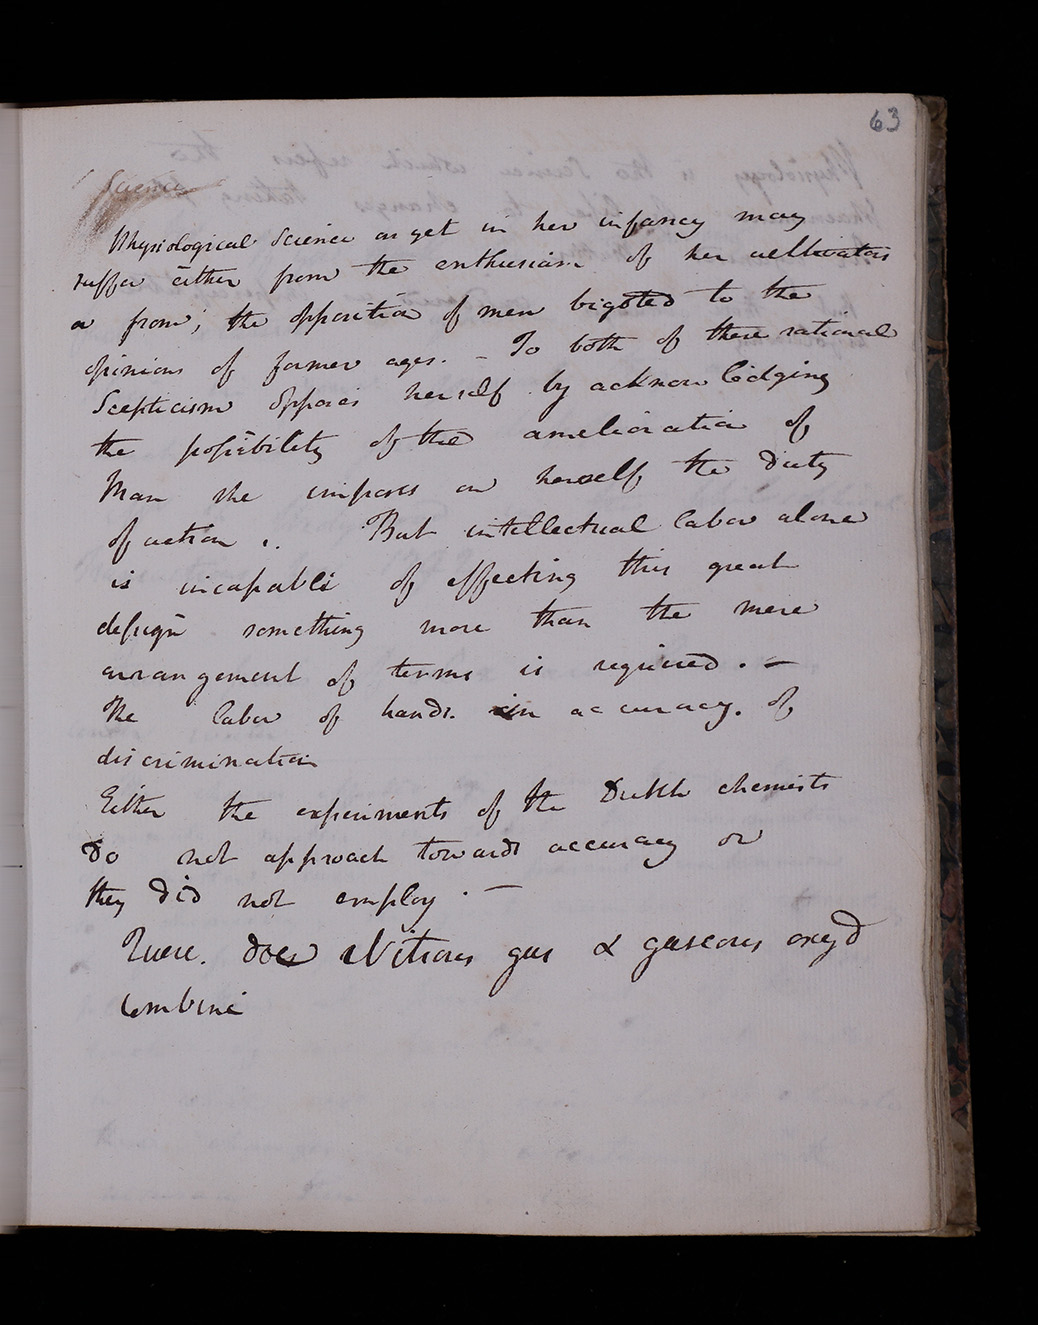 63
Science
Physiological Science as yet in her infancy may
suffer either from the enthusiasm of her cultivators
or from, the opposition of men bigoted to the
opinions of former ages. – To both of these rational
Scepticism opposes herself by acknowledging
the possibility of the amelioration of
Man she imposes on herself the duty
of action . But intellectual labor alone
is incapable of effecting this great
design something more than the mere
arrangement of terms is required. –
The labor of hands. in accuracy. of
discrimination
Either the experiments of the Dutch chemists
do not approach towards accuracy or
they did not employ . –
Quere. does Nitrous gas & gaseous oxyd
combine